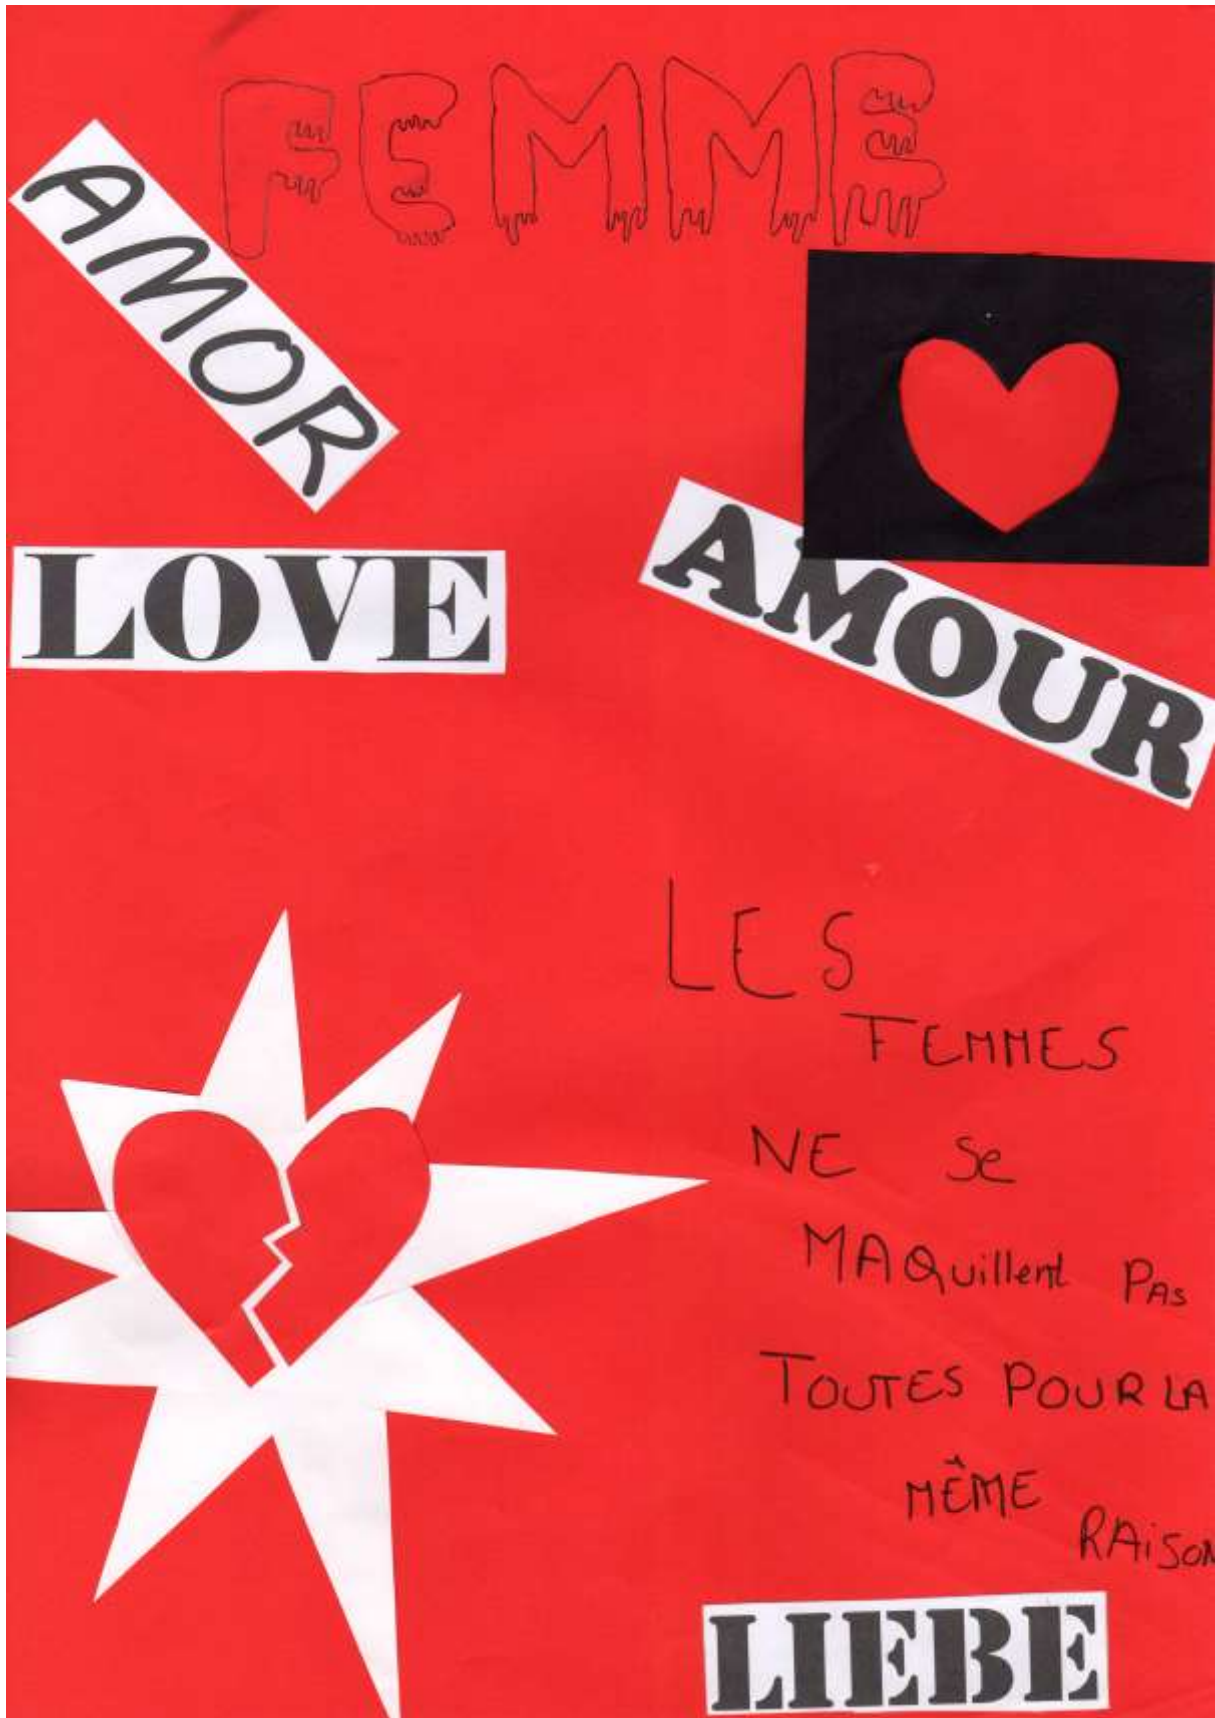 FEMME
AMOR
LOVE
AMOUR
LES
FEMMES
NE Se
MAQuillent PAs
TOUTES POUR LA
MÊME
RAiSON
LIEBE